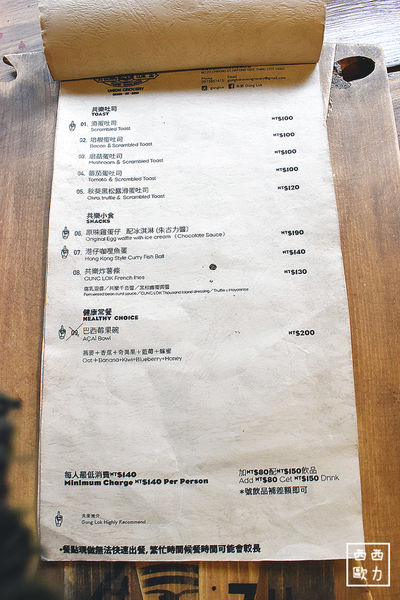 UNION GROCERY
共樂吐司
TOAST
01. 滑蛋吐司 NT$100
Scrambled Toast
02. 培根蛋吐司 NT$100
Bacon & Scrambled Toast
03. 蘑菇蛋吐司 NT$100
Mushroom & Scrambled Toast
04. 蕃茄蛋吐司 NT$100
Tomato & Scrambled Toast
05. 秋葵黑松露滑蛋吐司 NT$120
Okra, truffle & Scrambled Toast
共樂小食
SNACKS
06. 原味雞蛋仔 配冰淇淋 (朱古力醬) NT$190
Original Egg waffle with ice cream (Chocolate Sauce)
07. 港仔咖哩魚蛋 NT$140
Hong Kong Style Curry Fish Ball
08. 共樂炸薯條 NT$130
GUNG LOK French fries
腐乳豆醬／共樂千島醬／黑松露蛋黃醬
Fermented bean curd sauce／GUNG LOK Thousand Island dressing／Truffle Mayonnaise
健康常餐
HEALTHY CHOICE
09. 巴西莓果碗 NT$200
AÇAÍ Bowl
燕麥＋香蕉＋奇異果＋藍莓＋蜂蜜
Oat＋Banana＋Kiwi＋Blueberry＋Honey
每人最低消費NT$140
Minimum Charge NT$140 Per Person
加NT$80配NT$150飲品
Add NT$80 Get NT$150 Drink
*號飲品補差額即可
共樂推介
Gung Lok Highly Recommend
•餐點現做無法快速出餐, 繁忙時間候餐時間可能會較長
西西
歐力